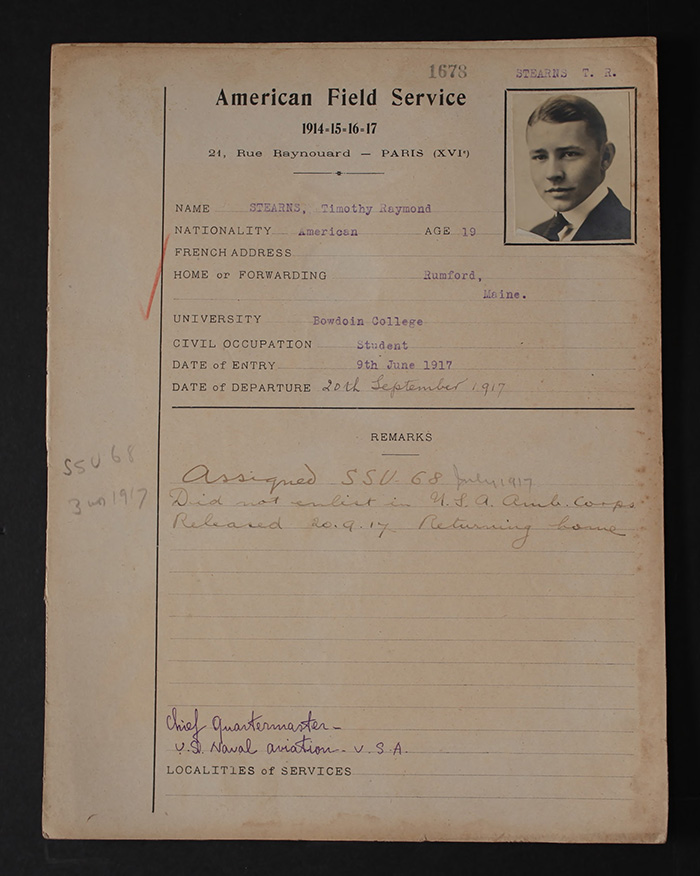 1678
STEARNS T. R.
American Field Service
1914=15=16=17
21, Rue Raynouard — PARIS (XVIᵉ)
NAME STEARNS, Timothy Raymond
NATIONALITY American AGE 19
FRENCH ADDRESS
HOME or FORWARDING Rumford,
Maine.
UNIVERSITY Bowdoin College
CIVIL OCCUPATION Student
DATE of ENTRY 9th June 1917
DATE of DEPARTURE 20th September 1917
REMARKS
SSU 68
3 mos 1917
Assigned SSU. 68 July 1917
Did not enlist in U.S.A. Amb. Corps
Released 20.9.17 Returning home
Chief Quartermaster-
U.S. Naval aviation- U.S.A.
LOCALITIES of SERVICES